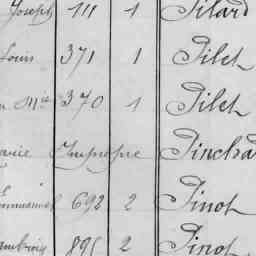 Joseph 111 1 Pilard
Louis 371 1 Pilet
Mie 370 1 Pilet
Impropre Pincha
692 2 Pinot
895 2 Pinot